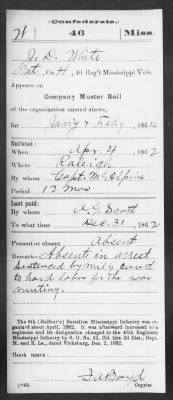 Confederate.
46 Miss.
J. D. White
Pvt, Co. H, 46 Reg't Mississippi Vols.
Appears on
Company Muster Roll
of the organization named above,
for Jan'y & Feb'y, 186
Enlisted:
When Apr. 4, 1862
Where Raleigh
By whom Capt. McAlpine
Period 12 Mos
Last paid:
By whom A. G. Scott
To what time Dec. 31, 1862
Present or absent Absent
Remarks: Absent in arrest
sentenced by mil'y court
to hard labor for the war
mutiny.
The 6th (Balfour's) Battalion Mississippi Infantry was or-
ganized about April, 1862. It was afterward increased to a
regiment and its designation changed to the 46th Regiment
Mississippi Infantry by S. O. No. 52, Hd. Qrs. 2d Dist., Dept.
M. and E. La., dated Vicksburg, Dec. 2, 1862.
Book mark:
Boyd
(642) Copyist.